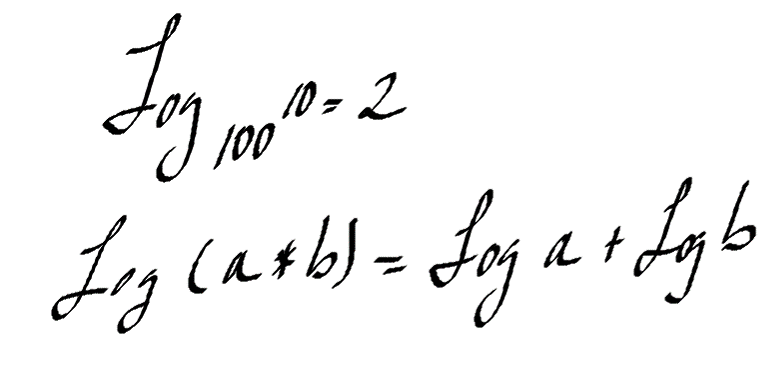 Log 100 10 = 2
Log (a * b) = Log a + Log b